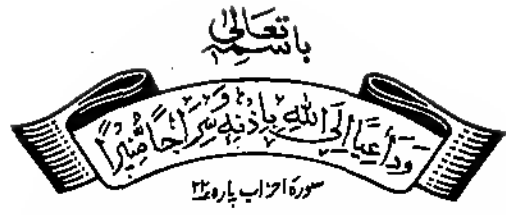 باسمہ تعالیٰ
وَدَاعِيًا إِلَى اللهِ بِإِذْنِهٖ وَسِرَاجًا مُّنِيْرًا
سورۃ احزاب پارہ ۲۲